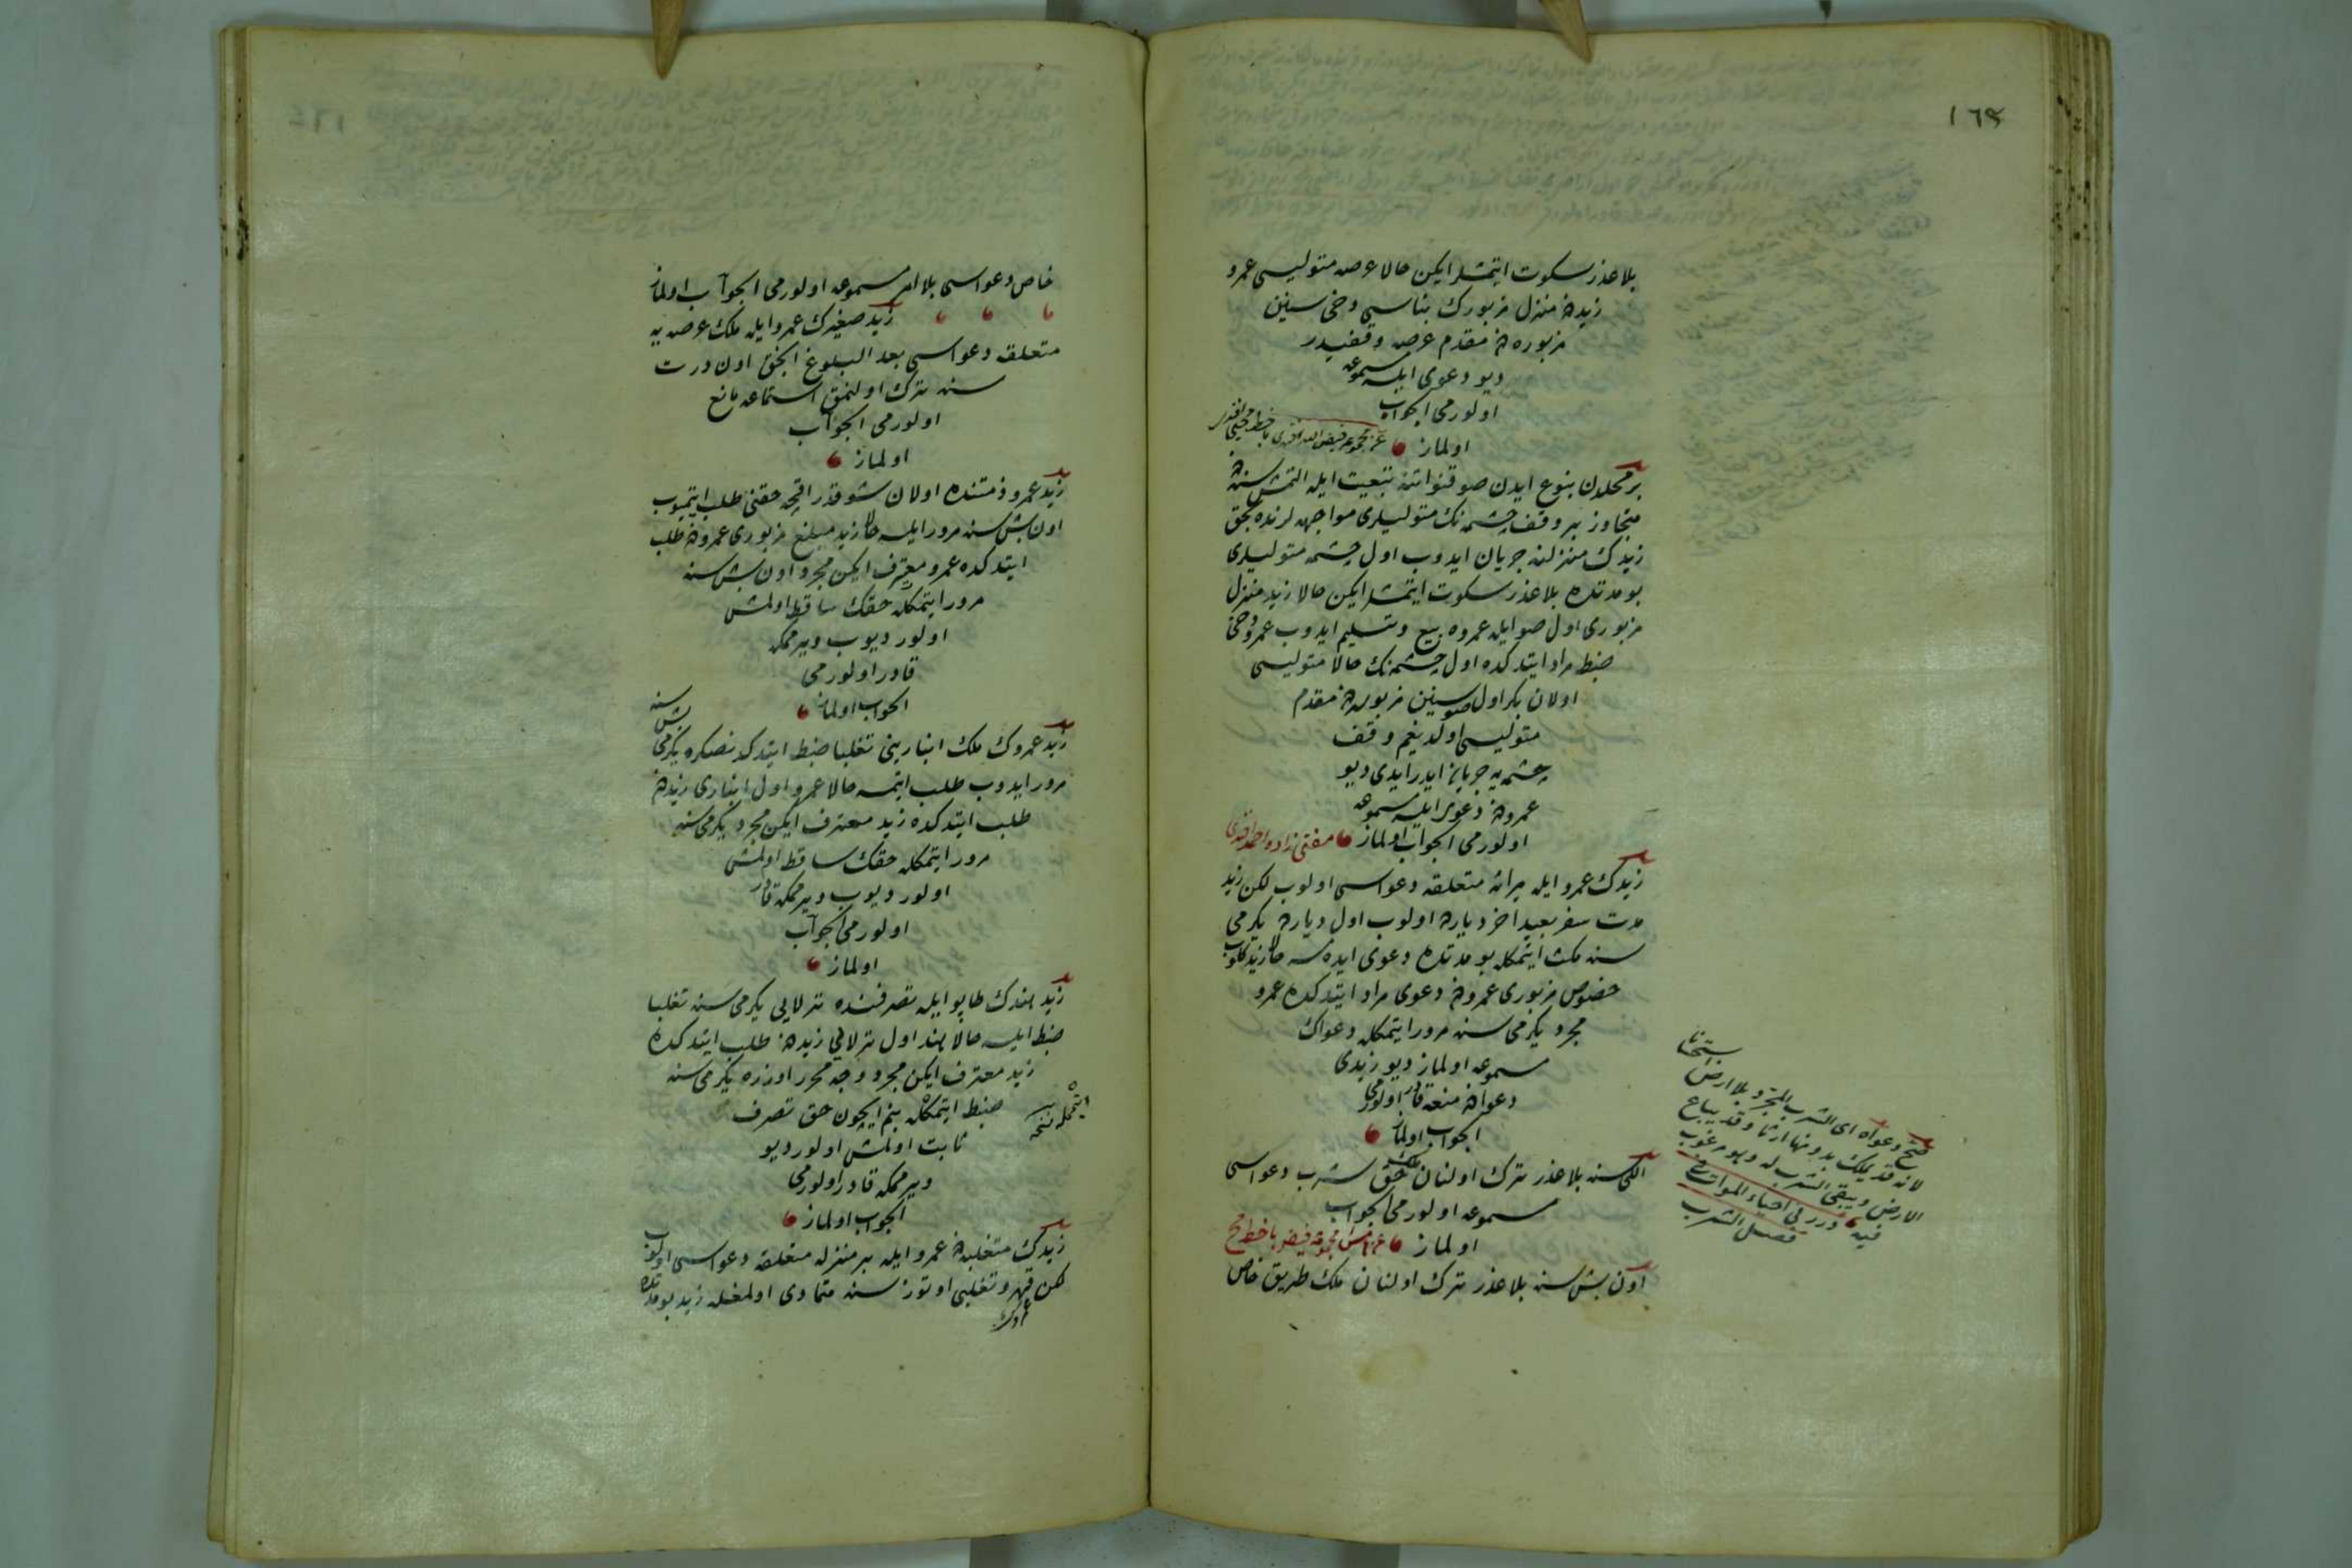 ١٦٣
بلا عذر سكوت ايتمشلر ايكن حالا عرصه متوليسى عمرو
زيدﻩ منزل مزبورك بناسى دخى سنين
مزبوره دن مقدم عرصه وقفيدر
ديو دعوى ايلسه مسموعه
اولورمى الجواب
اولماز
بر محلدن بنوع ايدن صو قنواتنه تبعيت ايله التمش سنه دن
متجاوز بر وقف چشمه نك متوليلرى مواجهه لرنده بحق
زيدك منزلنه جريان ايدوب اول چشمه متوليلرى
بو مدتده بلا عذر سكوت ايتمشلر ايكن حالا زيد منزل
مزبورى اول صو ايله عمروه بيع وتسليم ايدوب عمرو دخى
ضبط مراد ايتدكده اول چشمه نك حالا متوليسى
اولان بكر اول صو سنين مزبوره دن مقدم
متوليسى اولديغم وقف
چشمه يه جريان ايدر ايدى ديو
عمرودن دعوى ايلسه مسموعه
اولورمى الجواب اولماز مفتى زاده احمد افندى
زيدك عمرو ايله ميراثه متعلقه دعواسى اولوب لكن زيد
مدت سفر بعيد اخر ديارده اولوب اول ديارده يكرمى
سنه مكث ايتمكله بو مدتده دعوى ايده مسه حالا زيد كلوب
خصوص مزبورى عمرودن دعوى مراد ايتدكده عمرو
مجرد يكرمى سنه مرور ايتمكله دعواك
مسموعه اولماز ديو زيدى
دعوادن منعه قادر اولورمى
الجواب اولماز
اللى سنه بلا عذر ترك اولنان ملك حق شرب دعواسى
مسموعه اولورمى الجواب
اولماز
اون بش سنه بلا عذر ترك اولنان ملك طريق خاص
صح دعواه اى الشرب المجرد بلا ارض استحسانا
لانه قد يملك بدونها ارثا وقد يباع
الارض ويبقى الشرب له وهو مرغوب
فيه درر فى احياء الموات
فصل الشرب
خاص دعواسى بلا امر مسموعه اولورمى الجواب اولماز
زيد صغيرك عمرو ايله ملك عرصه يه
متعلقه دعواسى بعد البلوغ انجق اون درت
سنه ترك اولنمق استماعه مانع
اولورمى الجواب
اولماز
زيد عمرو ذمتنده اولان شو قدر اقچه حقنى طلب ايتميوب
اون بش سنه مرور ايلسه حالا زيد مبلغ مزبورى عمرودن طلب
ايتدكده عمرو معترف ايكن مجرد اون بش سنه
مرور ايتمكله حقك ساقط اولمش
اولور ديوب ويرمامكه
قادر اولورمى
الجواب اولماز
زيد عمروك ملك انبارينى تغلبا ضبط ايتدكدنصكره يكرمى بش سنه
مرور ايدوب طلب ايتمسه حالا عمرو اول انبارى زيددن
طلب ايتدكده زيد معترف ايكن مجرد يكرمى سنه
مرور ايتمكله حقك ساقط اولمش
اولور ديوب ويرمامكه قادر
اولورمى الجواب
اولماز
زيد هندك طاپو ايله تصرفنده تارلايى يكرمى سنه تغلبا
ضبط ايلسه حالا هند اول تارلايى زيددن طلب ايتدكده
زيد معترف ايكن مجرد وجه محرر اوزره يكرمى سنه
ضبط ايتمكله بنم ايچون حق تصرف
ايتمكله نسخه
ثابت اولمش اولور ديو
ويرمامكه قادر اولورمى
الجواب اولماز
زيدك متغلبه دن عمرو ايله بر منزله متعلقه دعواسى اولوب
لكن قهر وتغلبى اوتوز سنه متمادى اولمغله زيد بو مدتده
عمروك